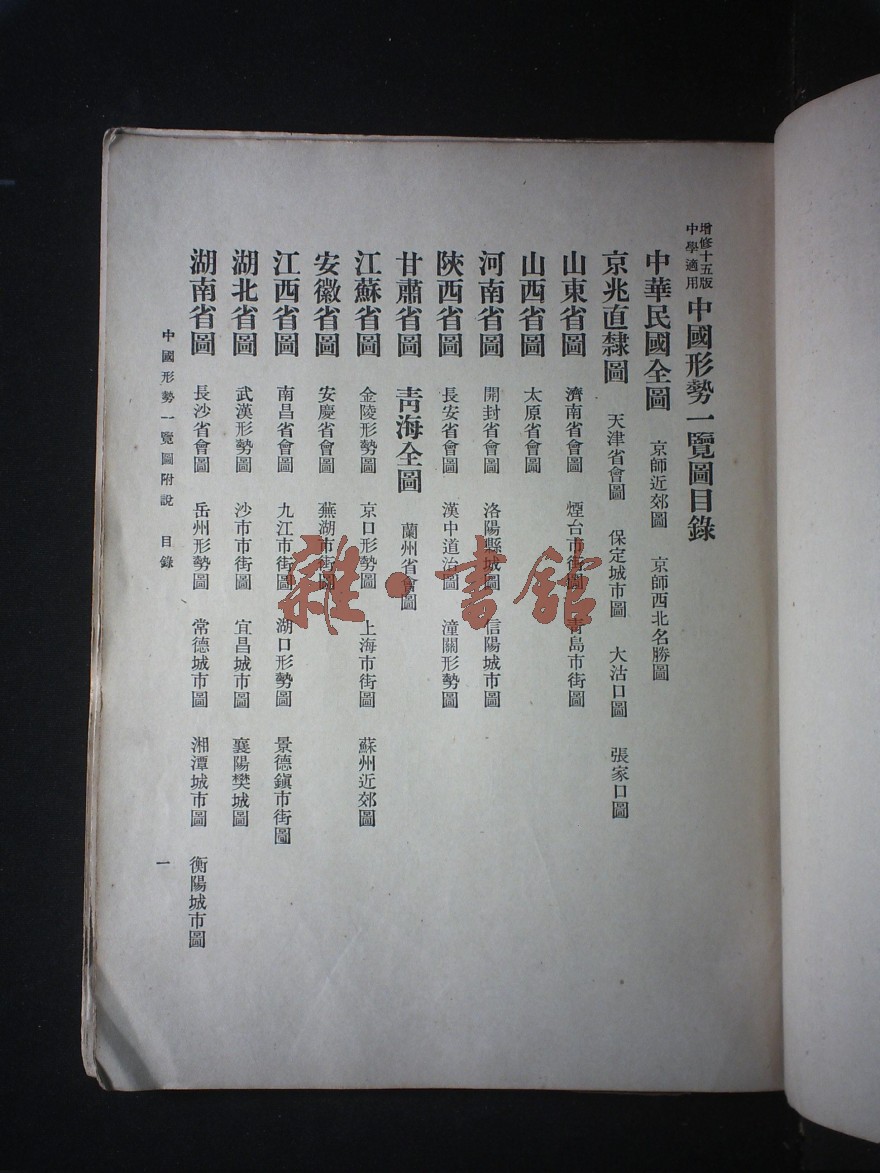 增修十五版
中學適用
中國形勢一覽圖目錄
中華民國全圖　京師近郊圖　京師西北名勝圖
京兆直隸圖　天津省會圖　保定城市圖　大沽口圖　張家口圖
山東省圖　濟南省會圖　煙台市街圖　青島市街圖
山西省圖　太原省會圖
河南省圖　開封省會圖　洛陽縣城圖　信陽城市圖
陝西省圖　長安省會圖　漢中道治圖　潼關形勢圖
甘肅省圖　青海全圖　蘭州省會圖
江蘇省圖　金陵形勢圖　京口形勢圖　上海市街圖　蘇州近郊圖
安徽省圖　安慶省會圖　蕪湖市街圖
江西省圖　南昌省會圖　九江市街圖　湖口形勢圖　景德鎭市街圖
湖北省圖　武漢形勢圖　沙市市街圖　宜昌城市圖　襄陽樊城圖
湖南省圖　長沙省會圖　岳州形勢圖　常德城市圖　湘潭城市圖　衡陽城市圖
中國形勢一覽圖附說　目錄　一
雜·書館